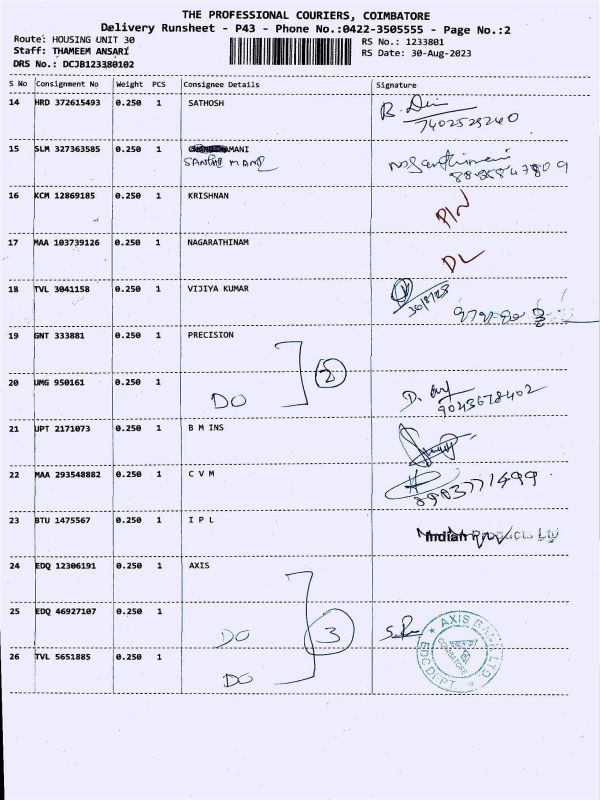 THE PROFESSIONAL COURIERS, COIMBATORE
Delivery Runsheet - P43 - Phone No.:0422-3505555 - Page No.:2
Route: HOUSING UNIT 30
RS No.: 1233801
Staff: THAMEEM ANSARI
RS Date: 30-Aug-2023
DRS No.: DCJB123380102
S No Consignment No Weight PCS Consignee Details Signature
14 HRD 372615493 0.250 1 SATHOSH
7402529240
15 SLM 327363585 0.250 1 MANI
16 KCM 12869185 0.250 1 KRISHNAN
17 MAA 103739126 0.250 1 NAGARATHINAM DL
18 TVL 3041158 0.250 1 VIJIYA KUMAR
30/8/23
19 GNT 333881 0.250 1 PRECISION
2
20 UMG 950161 0.250 1 DO
9043678402
21 UPT 2171073 0.250 1 B M INS
22 MAA 293548882 0.250 1 C V M
8903771499
23 BTU 1475567 0.250 1 I P L Indian Products Ltd
24 EDQ 12306191 0.250 1 AXIS
25 EDQ 46927107 0.250 1 DO 3
AXIS BANK LTD.
COIMBATORE
EDC DEPT
26 TVL 5651885 0.250 1 DO